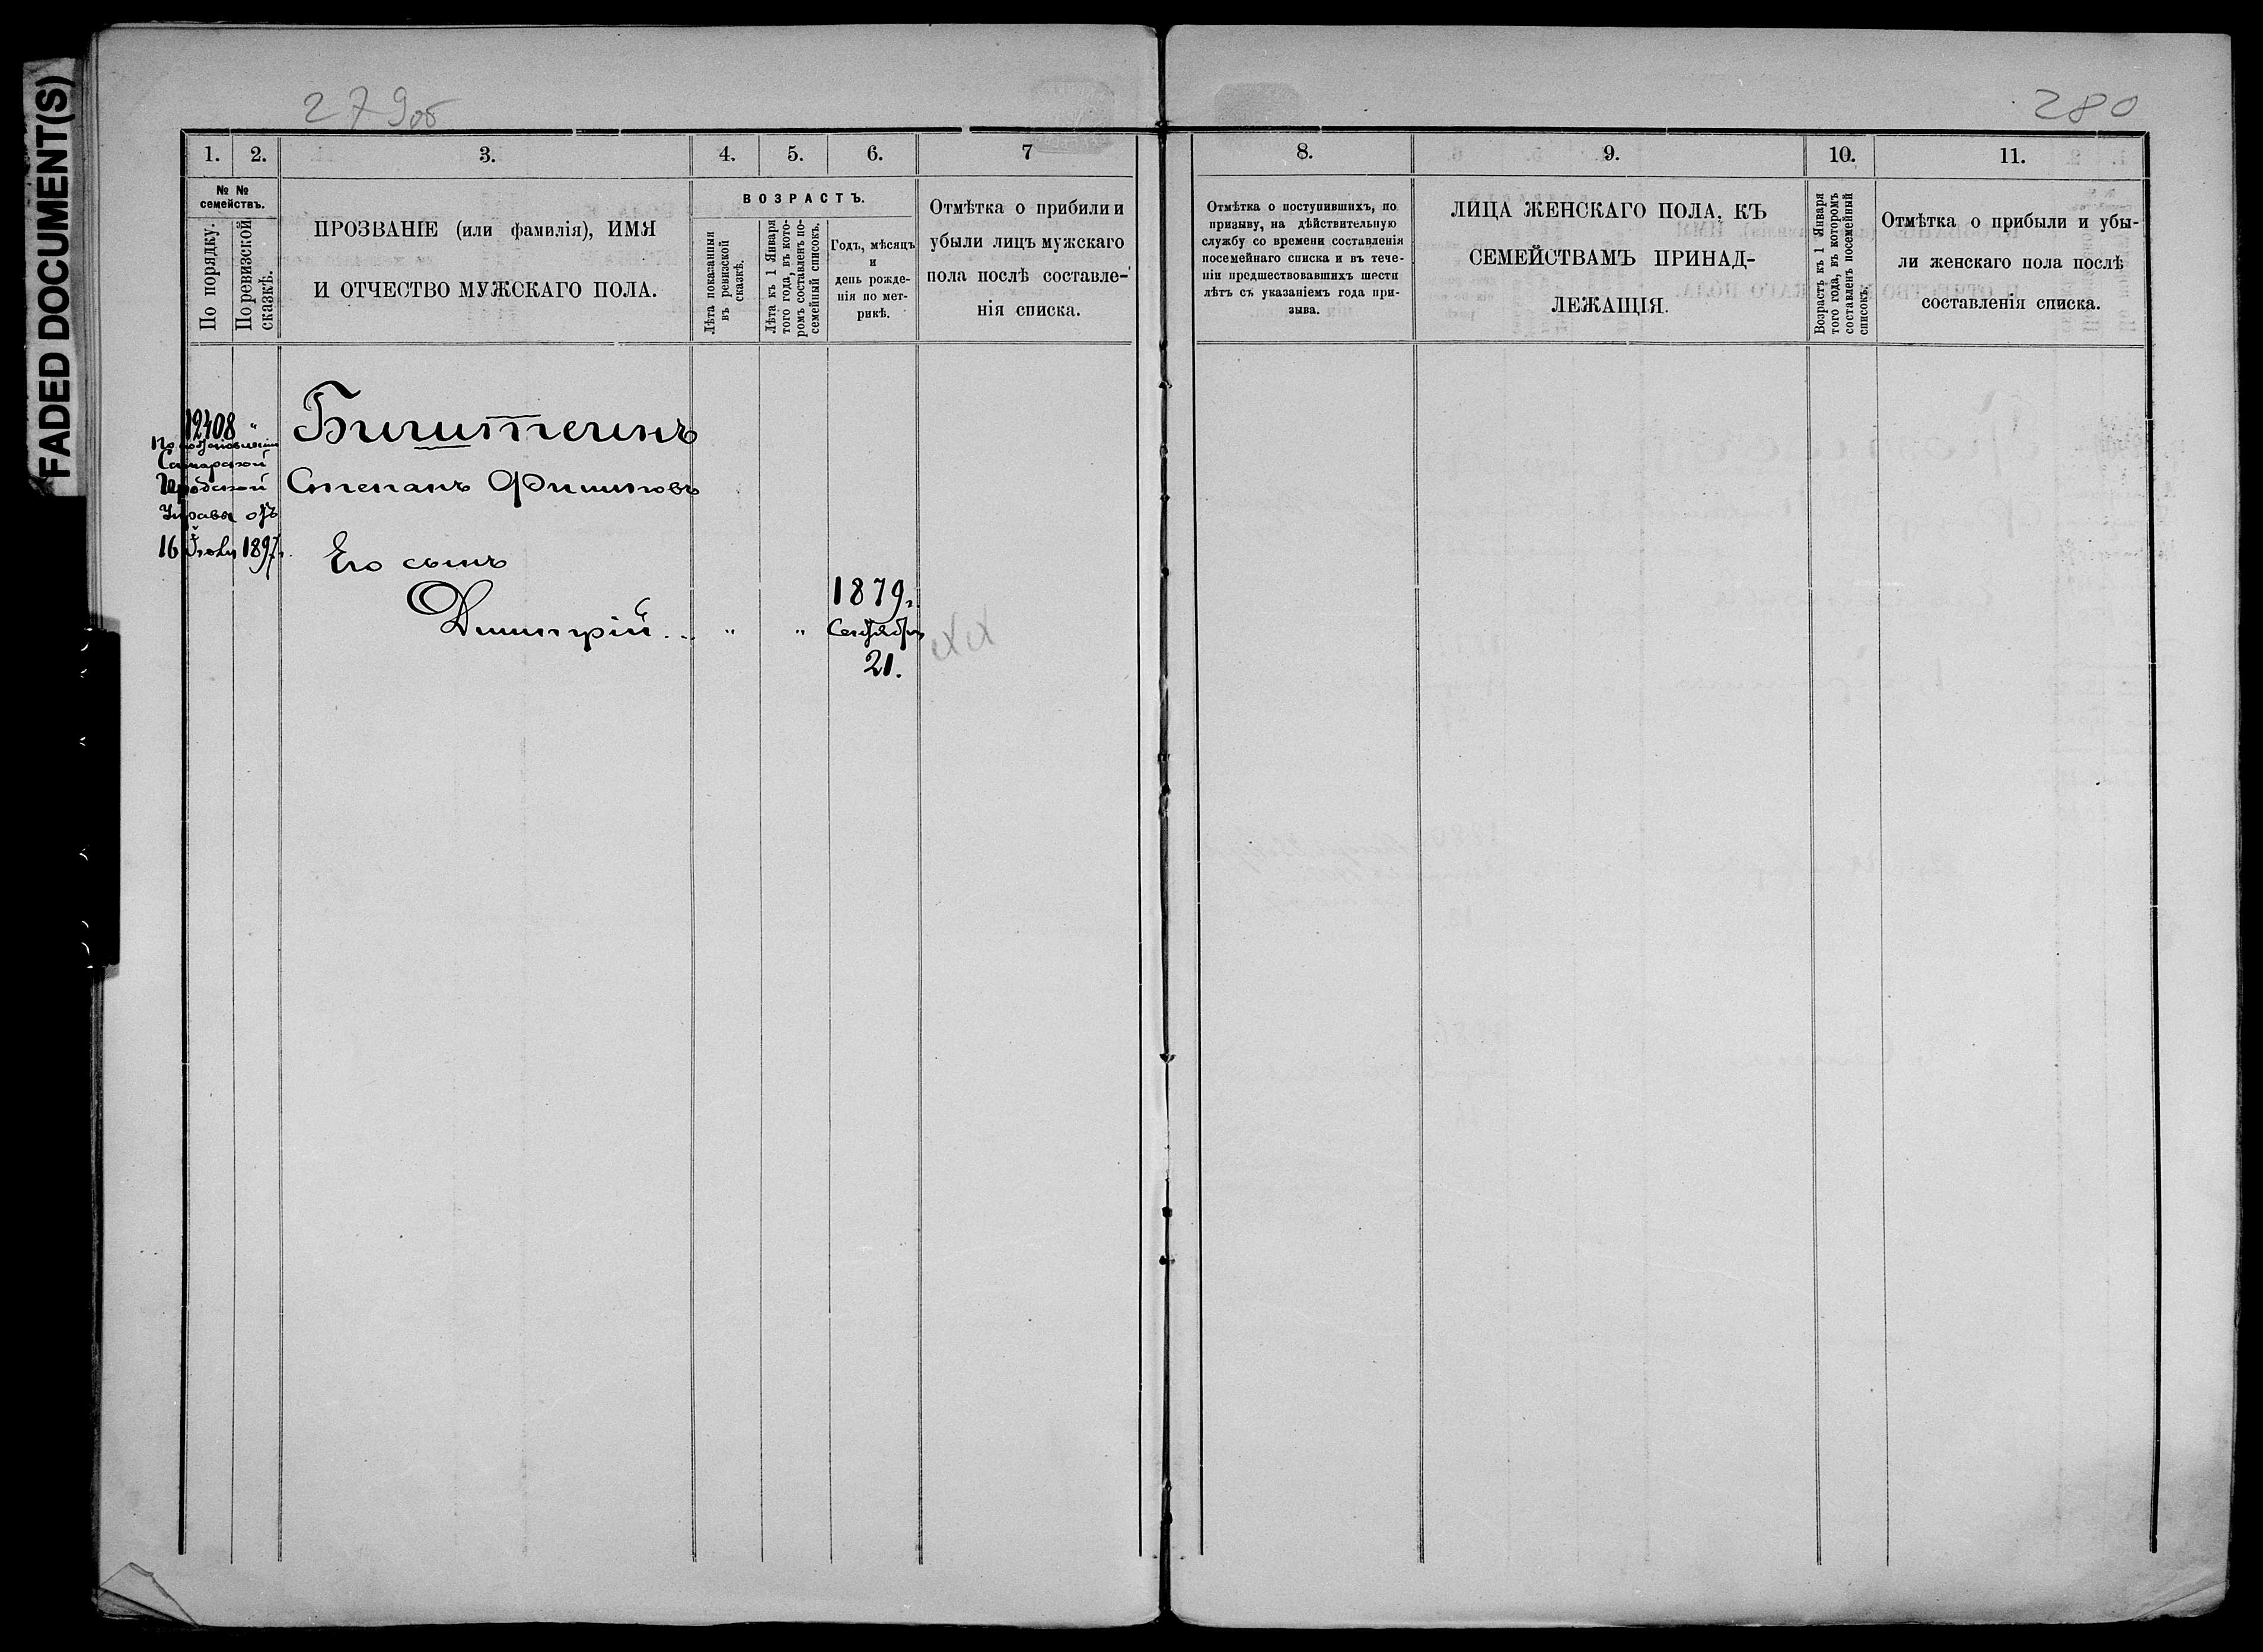 FADED DOCUMENT(S)
279об
280
1. 2. 3. 4. 5. 6. 7
№ № семействъ.
По порядку.
По ревизской сказкѣ.
ПРОЗВАНІЕ (или фамилія), ИМЯ
И ОТЧЕСТВО МУЖСКАГО ПОЛА.
ВОЗРАСТЪ.
Лѣта показанныя
въ ревизской
сказкѣ.
Лѣта къ 1 Января
того года, въ кото-
ромъ составленъ по-
семейный списокъ.
Годъ, мѣсяцъ
и
день рожде-
нія по мет-
рикѣ.
Отмѣтка о прибили и
убыли лицъ мужскаго
пола послѣ составле-
нія списка.
8. 9. 10. 11.
Отмѣтка о поступившихъ, по
призыву, на дѣйствительную
службу со времени составленія
посемейнаго списка и въ тече-
ніи предшествовавшихъ шести
лѣтъ съ указаніемъ года при-
зыва.
ЛИЦА ЖЕНСКАГО ПОЛА, КЪ
СЕМЕЙСТВАМЪ ПРИНАД-
ЛЕЖАЩІЯ.
Возрастъ къ 1 Января
того года, въ которомъ
составленъ посемейный
списокъ.
Отмѣтка о прибыли и убы-
ли женскаго пола послѣ
составленія списка.
12408 "
По постановленію
Самарской
Городской
Управы отъ
16 Іюля 1897 г.
Степанъ
Его сынъ
Димитрій . . " "
1879 г.
Сентября
21.